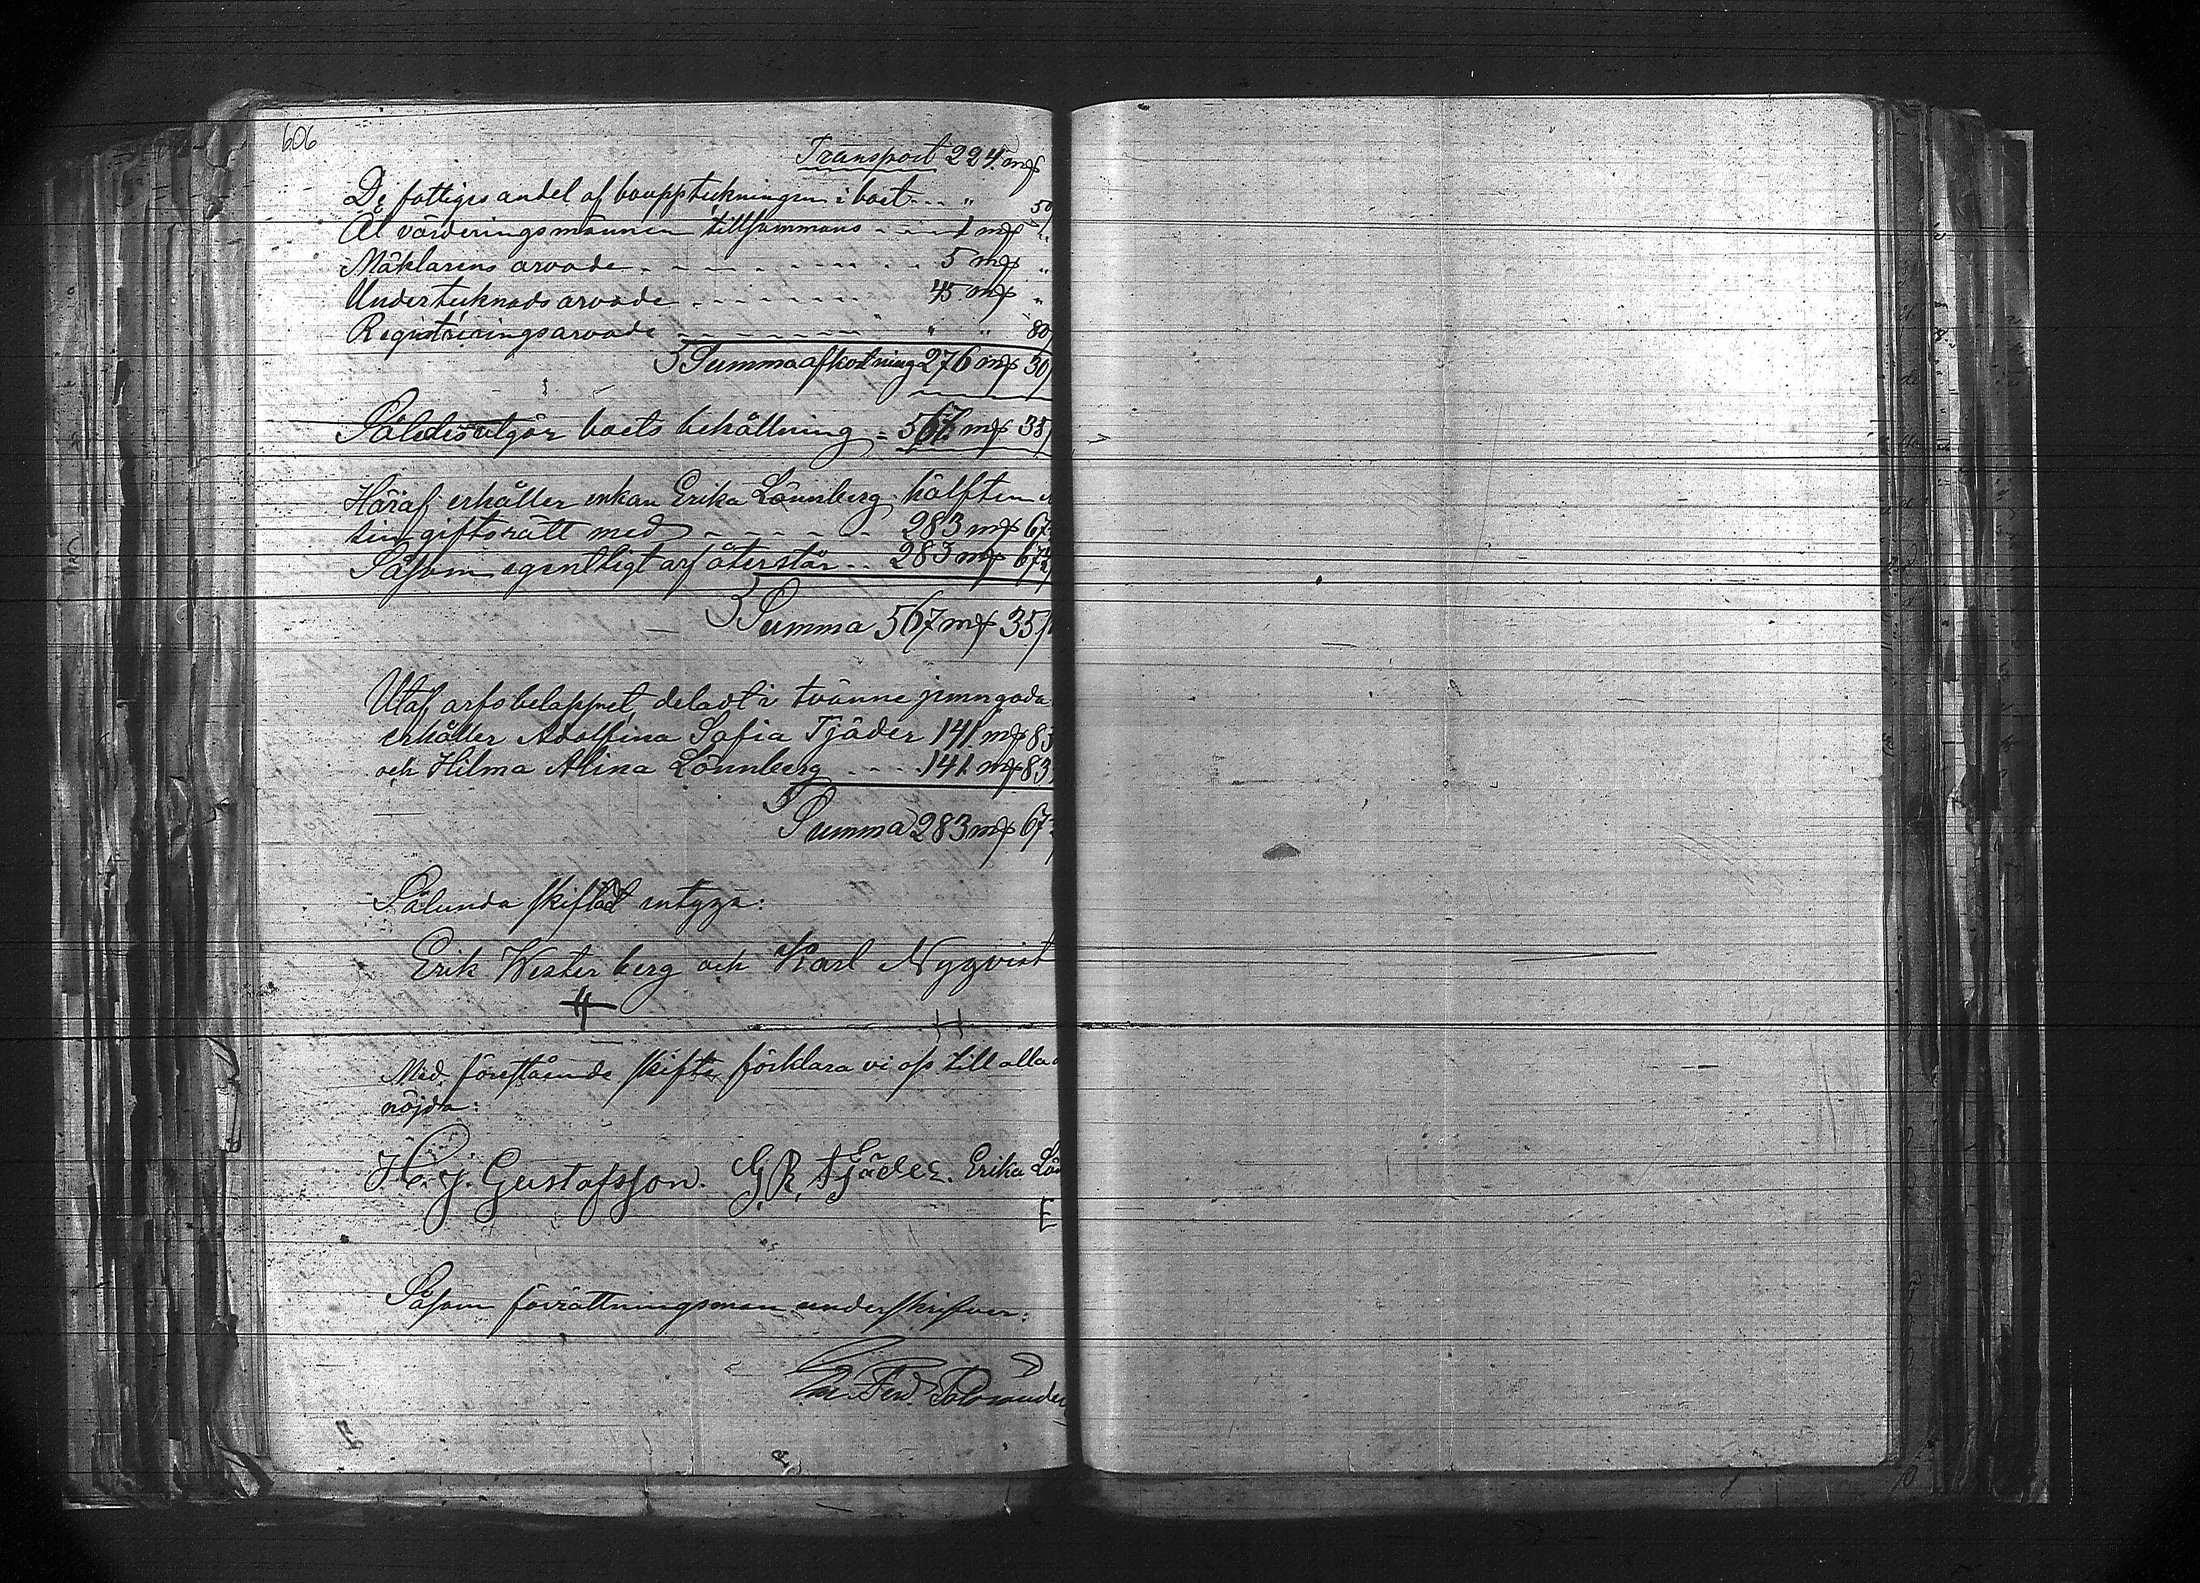 606
Transport 224 mf
De fattiges andel af bouppteckningen i boet - - - " 50
Åt värderingsmännen tillsammans - - - 1 mf "
Mäklarens arvode - - - - - - - 5 mf "
Undertecknads arvode - - - - - - 45 mf "
Registreringsarvode - - - - - - " " 80
Summa afkortning 276 mf 30
Således utgör boets behållning = 567 mf 35
Häraf erhåller enkan Erika Lönnberg hälften
sin giftsrätt med - - - - - 283 mf 67
Såsom egentligt arf återstår - - 283 mf 67½
Summa 567 mf 35
Utaf arfsbeloppet, deladt i tvänne jemngoda
erhåller Adolfina Sofia Tjäder 141 mf 83
och Hilma Alina Lönnberg - - - 141 mf 83
Summa 283 mf 67
Sålunda skiftadt intyga:
Erik Westerberg och Karl Nyqvist
Med förestående skifte förklara vi oss till alla
nöjda:
H. J. Gustafsson. G. R. Tjäder. Erika Lön
E
Såsom förrättningsman underskrifver:
Ferd. Palmander